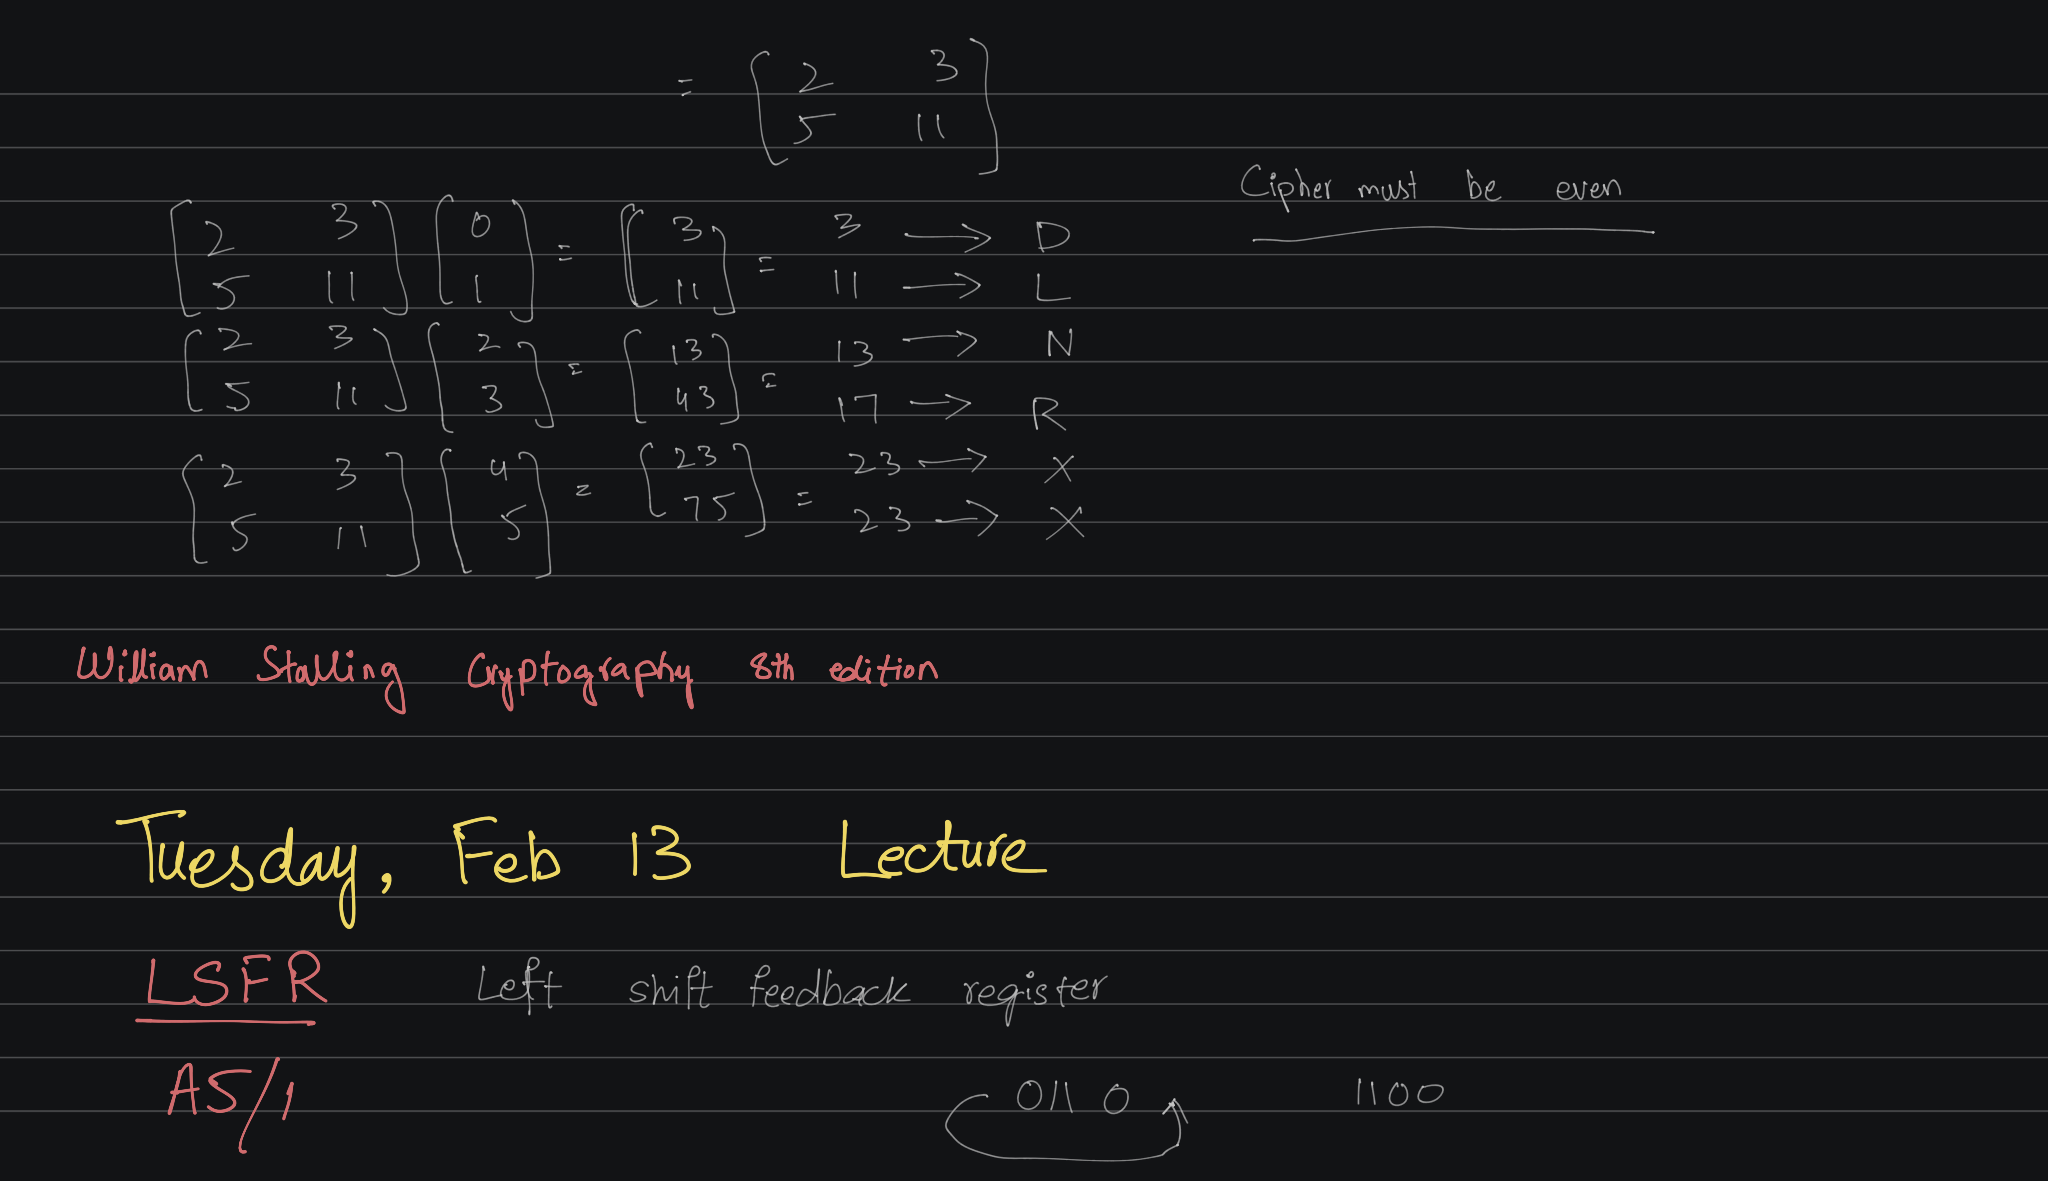 = [ 2 3
5 11 ]
Cipher must be even
[ 2 3 ] [ 0 ] = [ 3 ] = 3 → D
[ 5 11 ] [ 1 ] [ 11 ] 11 → L
[ 2 3 ] [ 2 ] = [ 13 ] = 13 → N
[ 5 11 ] [ 3 ] [ 43 ] 17 → R
[ 2 3 ] [ 4 ] = [ 23 ] = 23 → X
[ 5 11 ] [ 5 ] [ 75 ] 23 → X
William Stalling Cryptography 8th edition
Tuesday, Feb 13 Lecture
LSFR Left shift feedback register
A5/1 0110 1100